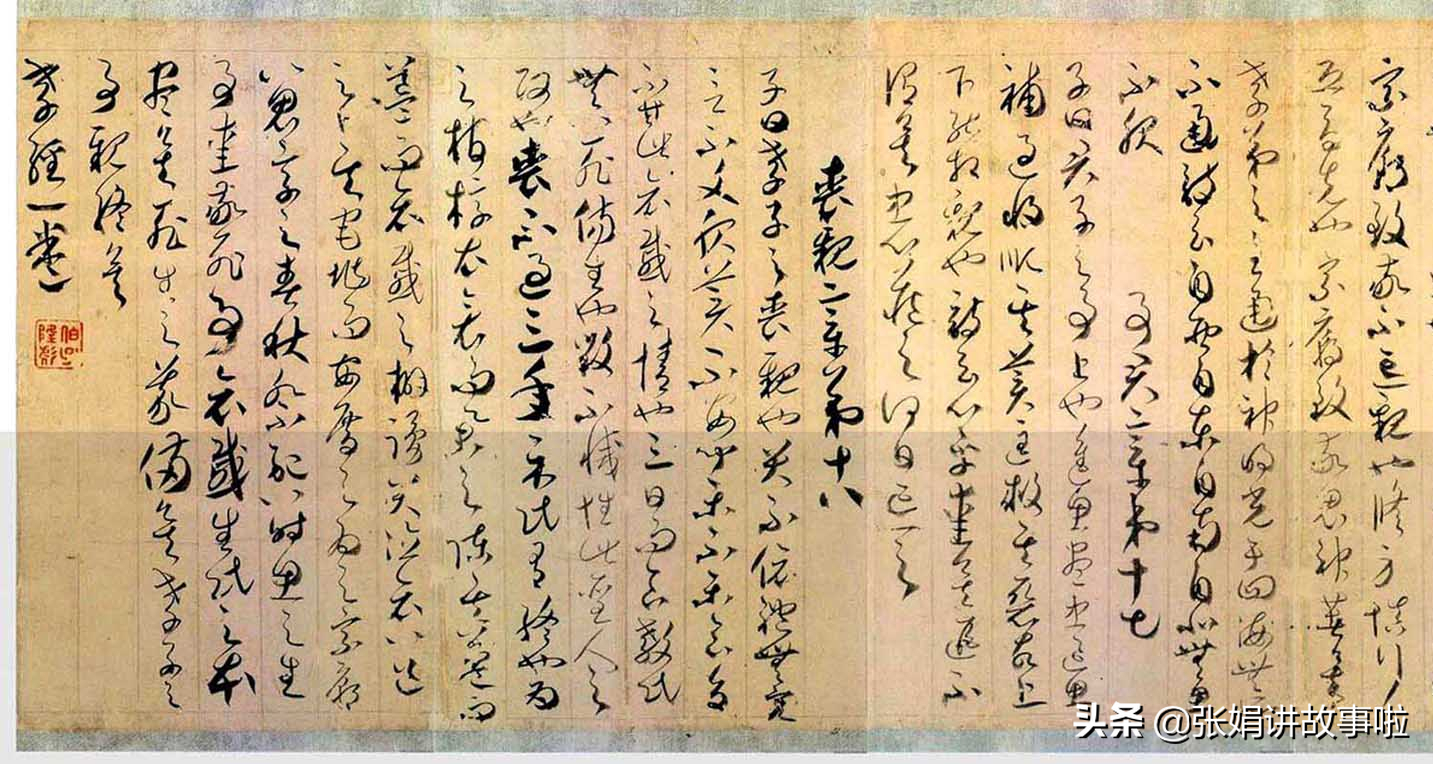 宗廟致敬不忘親也脩身慎行
恐辱先也宗廟致敬鬼神著矣
孝弟之至通於神明光于四海無
不通詩云自西自東自南自北無思
不服 事君章第十七
子曰君子之事上也進思盡忠退思
補過將順其美匡救其惡故上
下能相親也詩云心乎愛矣遐不
謂矣忠心藏之何日忘之
喪親章第十八
子曰孝子之喪親也哭不依禮無容
言不文服美不安聞樂不樂食旨
不甘此哀慼之情也三日而食教民
無以死傷生也毀不滅性此聖人之
政也喪不過三年示民有終也為
之棺椁衣衾而舉之陳其簠簋而
哀慼之擗踊哭泣哀以送
之卜其宅兆而安厝之為之宗廟
以鬼享之春秋祭祀以時思之生
事愛敬死事哀慼生民之本
盡矣死生之義備矣孝子之
事親終矣
孝經一卷
头条 @张娟讲故事啦